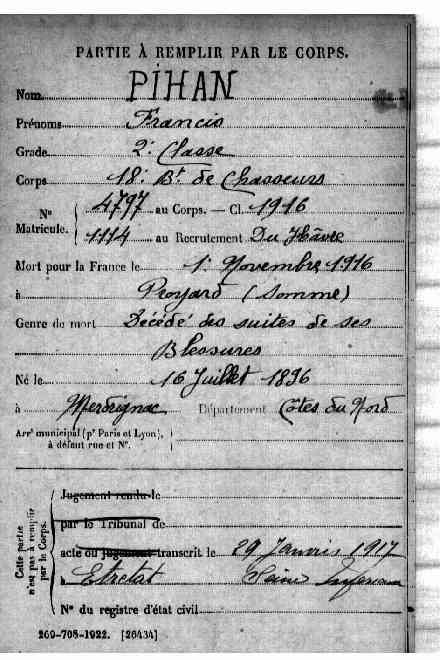 PARTIE À REMPLIR PAR LE CORPS.
Nom PIHAN
Prénoms Francis
Grade 2e Classe
Corps 18e Bt de Chasseurs
Nº Matricule. 4797 au Corps. — Cl. 1916
1114 au Recrutement Du Hâvre
Mort pour la France le 1er Novembre 1916
à Proyard (Somme)
Genre de mort Décédé des suites de ses
Blessures
Né le 16 Juillet 1896
à Merdrignac Département Côtes du Nord
Arrt municipal (pr Paris et Lyon),
à défaut rue et Nº.
Cette partie n'est pas à remplir par le Corps.
Jugement rendu le
par le Tribunal de
acte ou jugement transcrit le 29 Janvris 1917
à Etretat Seine Inférieure
Nº du registre d'état civil
260-708-1922. [26434]